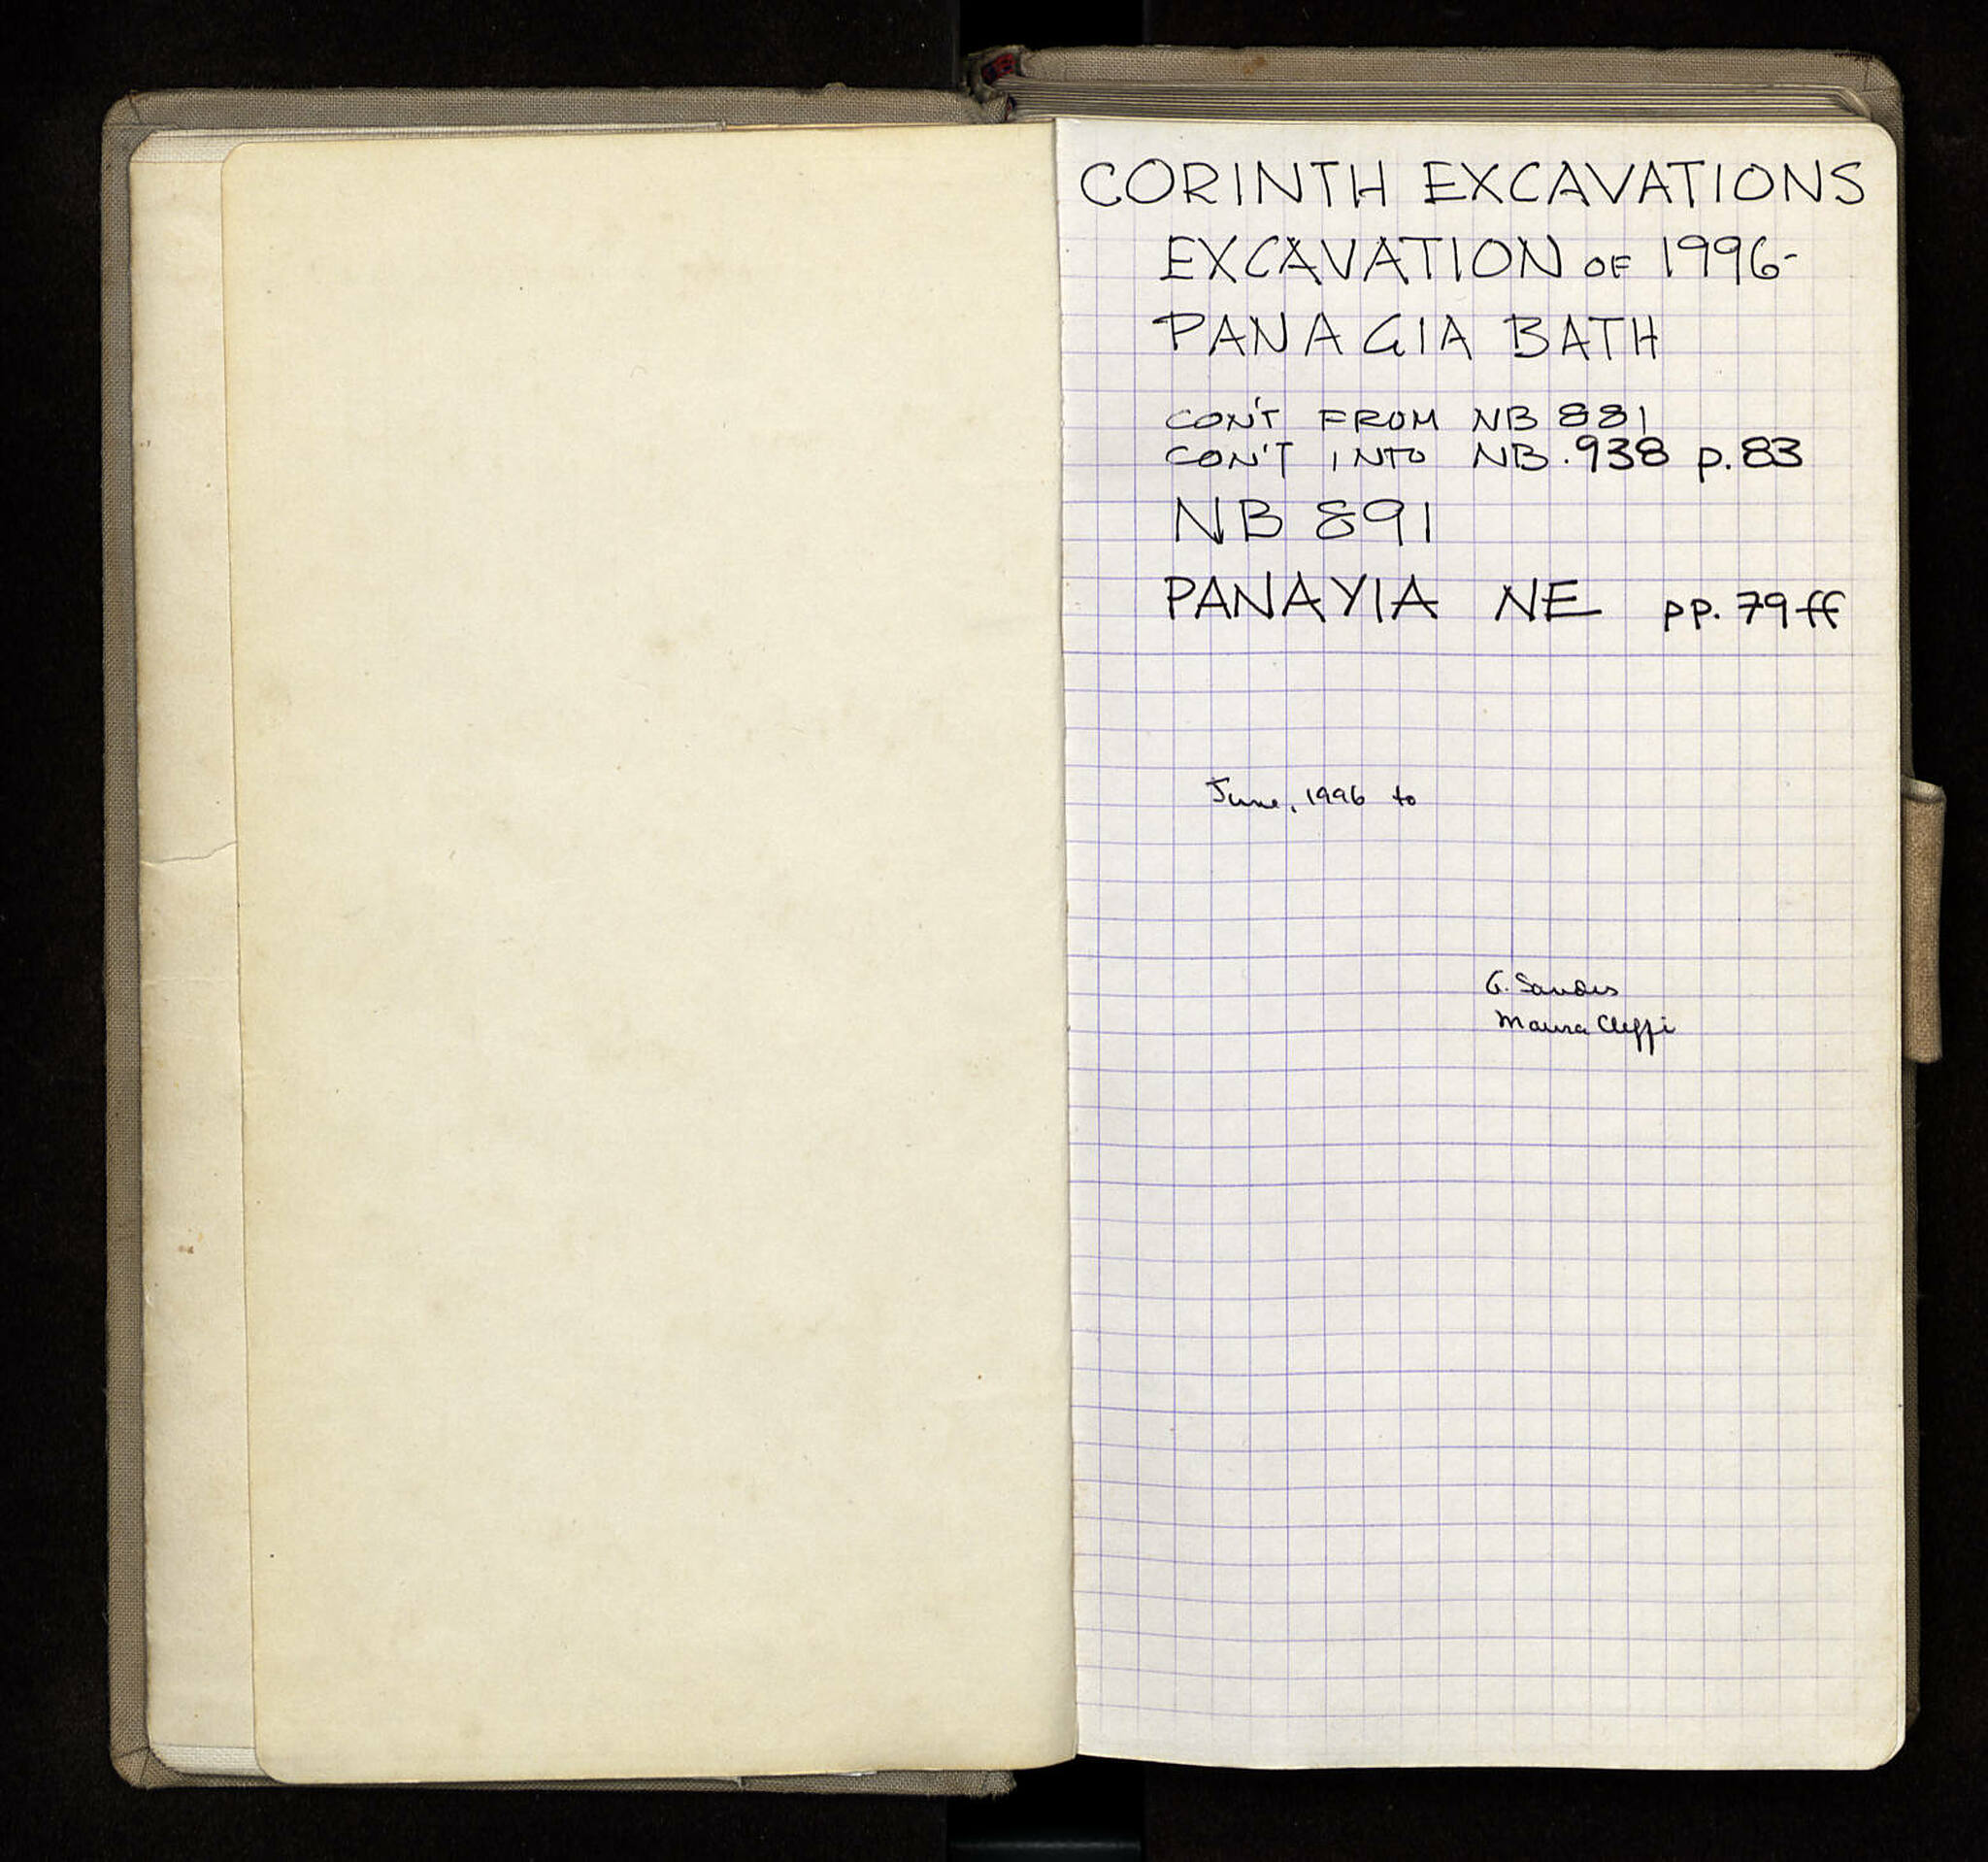 CORINTH EXCAVATIONS
EXCAVATION OF 1996-
PANAGIA BATH
CON'T FROM NB 881
CON'T INTO NB.938 p.83
NB 891
PANAYIA NE pp. 79ff
June, 1996 to
G. Sanders
Maura Cleffi